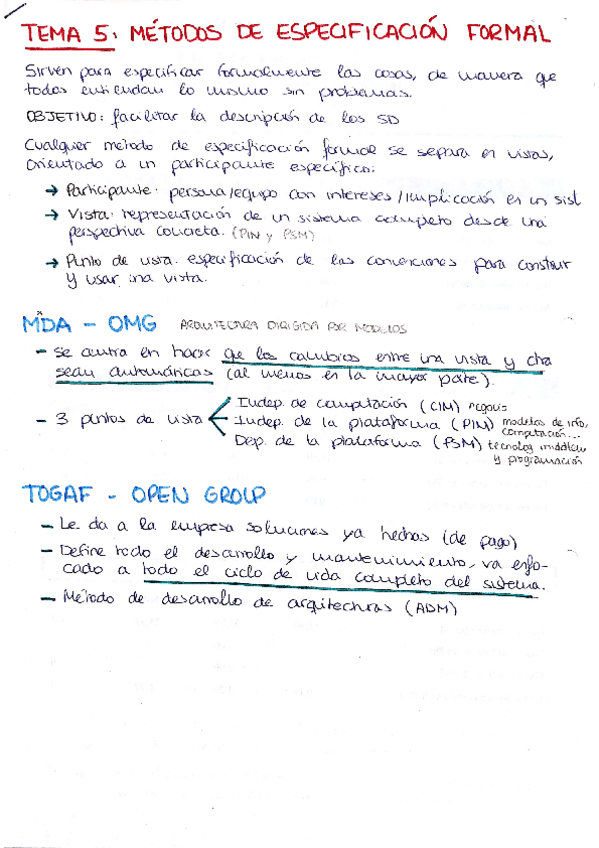 TEMA 5: MÉTODOS DE ESPECIFICACIÓN FORMAL
Sirven para especificar formalmente las cosas, de manera que
todos entiendan lo mismo sin problemas.
OBJETIVO: facilitar la descripción de los SD
Cualquier método de especificación formal se separa en vistas,
orientado a un participante específico:
→ Participante: persona/equipo con intereses/implicación en un sist
→ Vista: representación de un sistema completo desde una
perspectiva concreta. (PIN y PSM)
→ Punto de vista: especificación de las convenciones para construir
y usar una vista.
MDA - OMG ARQUITECTURA DIRIGIDA POR MODELOS
- Se centra en hacer que los cambios entre una vista y otra
sean automáticos (al menos en la mayor parte).
- 3 puntos de vista
Indep. de computación (CIM) negocio
Indep. de la plataforma (PIM) modelos de info, computación...
Dep. de la plataforma (PSM) tecnolog middlew y programación
TOGAF - OPEN GROUP
- Le da a la empresa soluciones ya hechas (de pago)
- Define todo el desarrollo y mantenimiento, va enfo-
cado a todo el ciclo de vida completo del sistema.
- Método de desarrollo de arquitecturas (ADM)